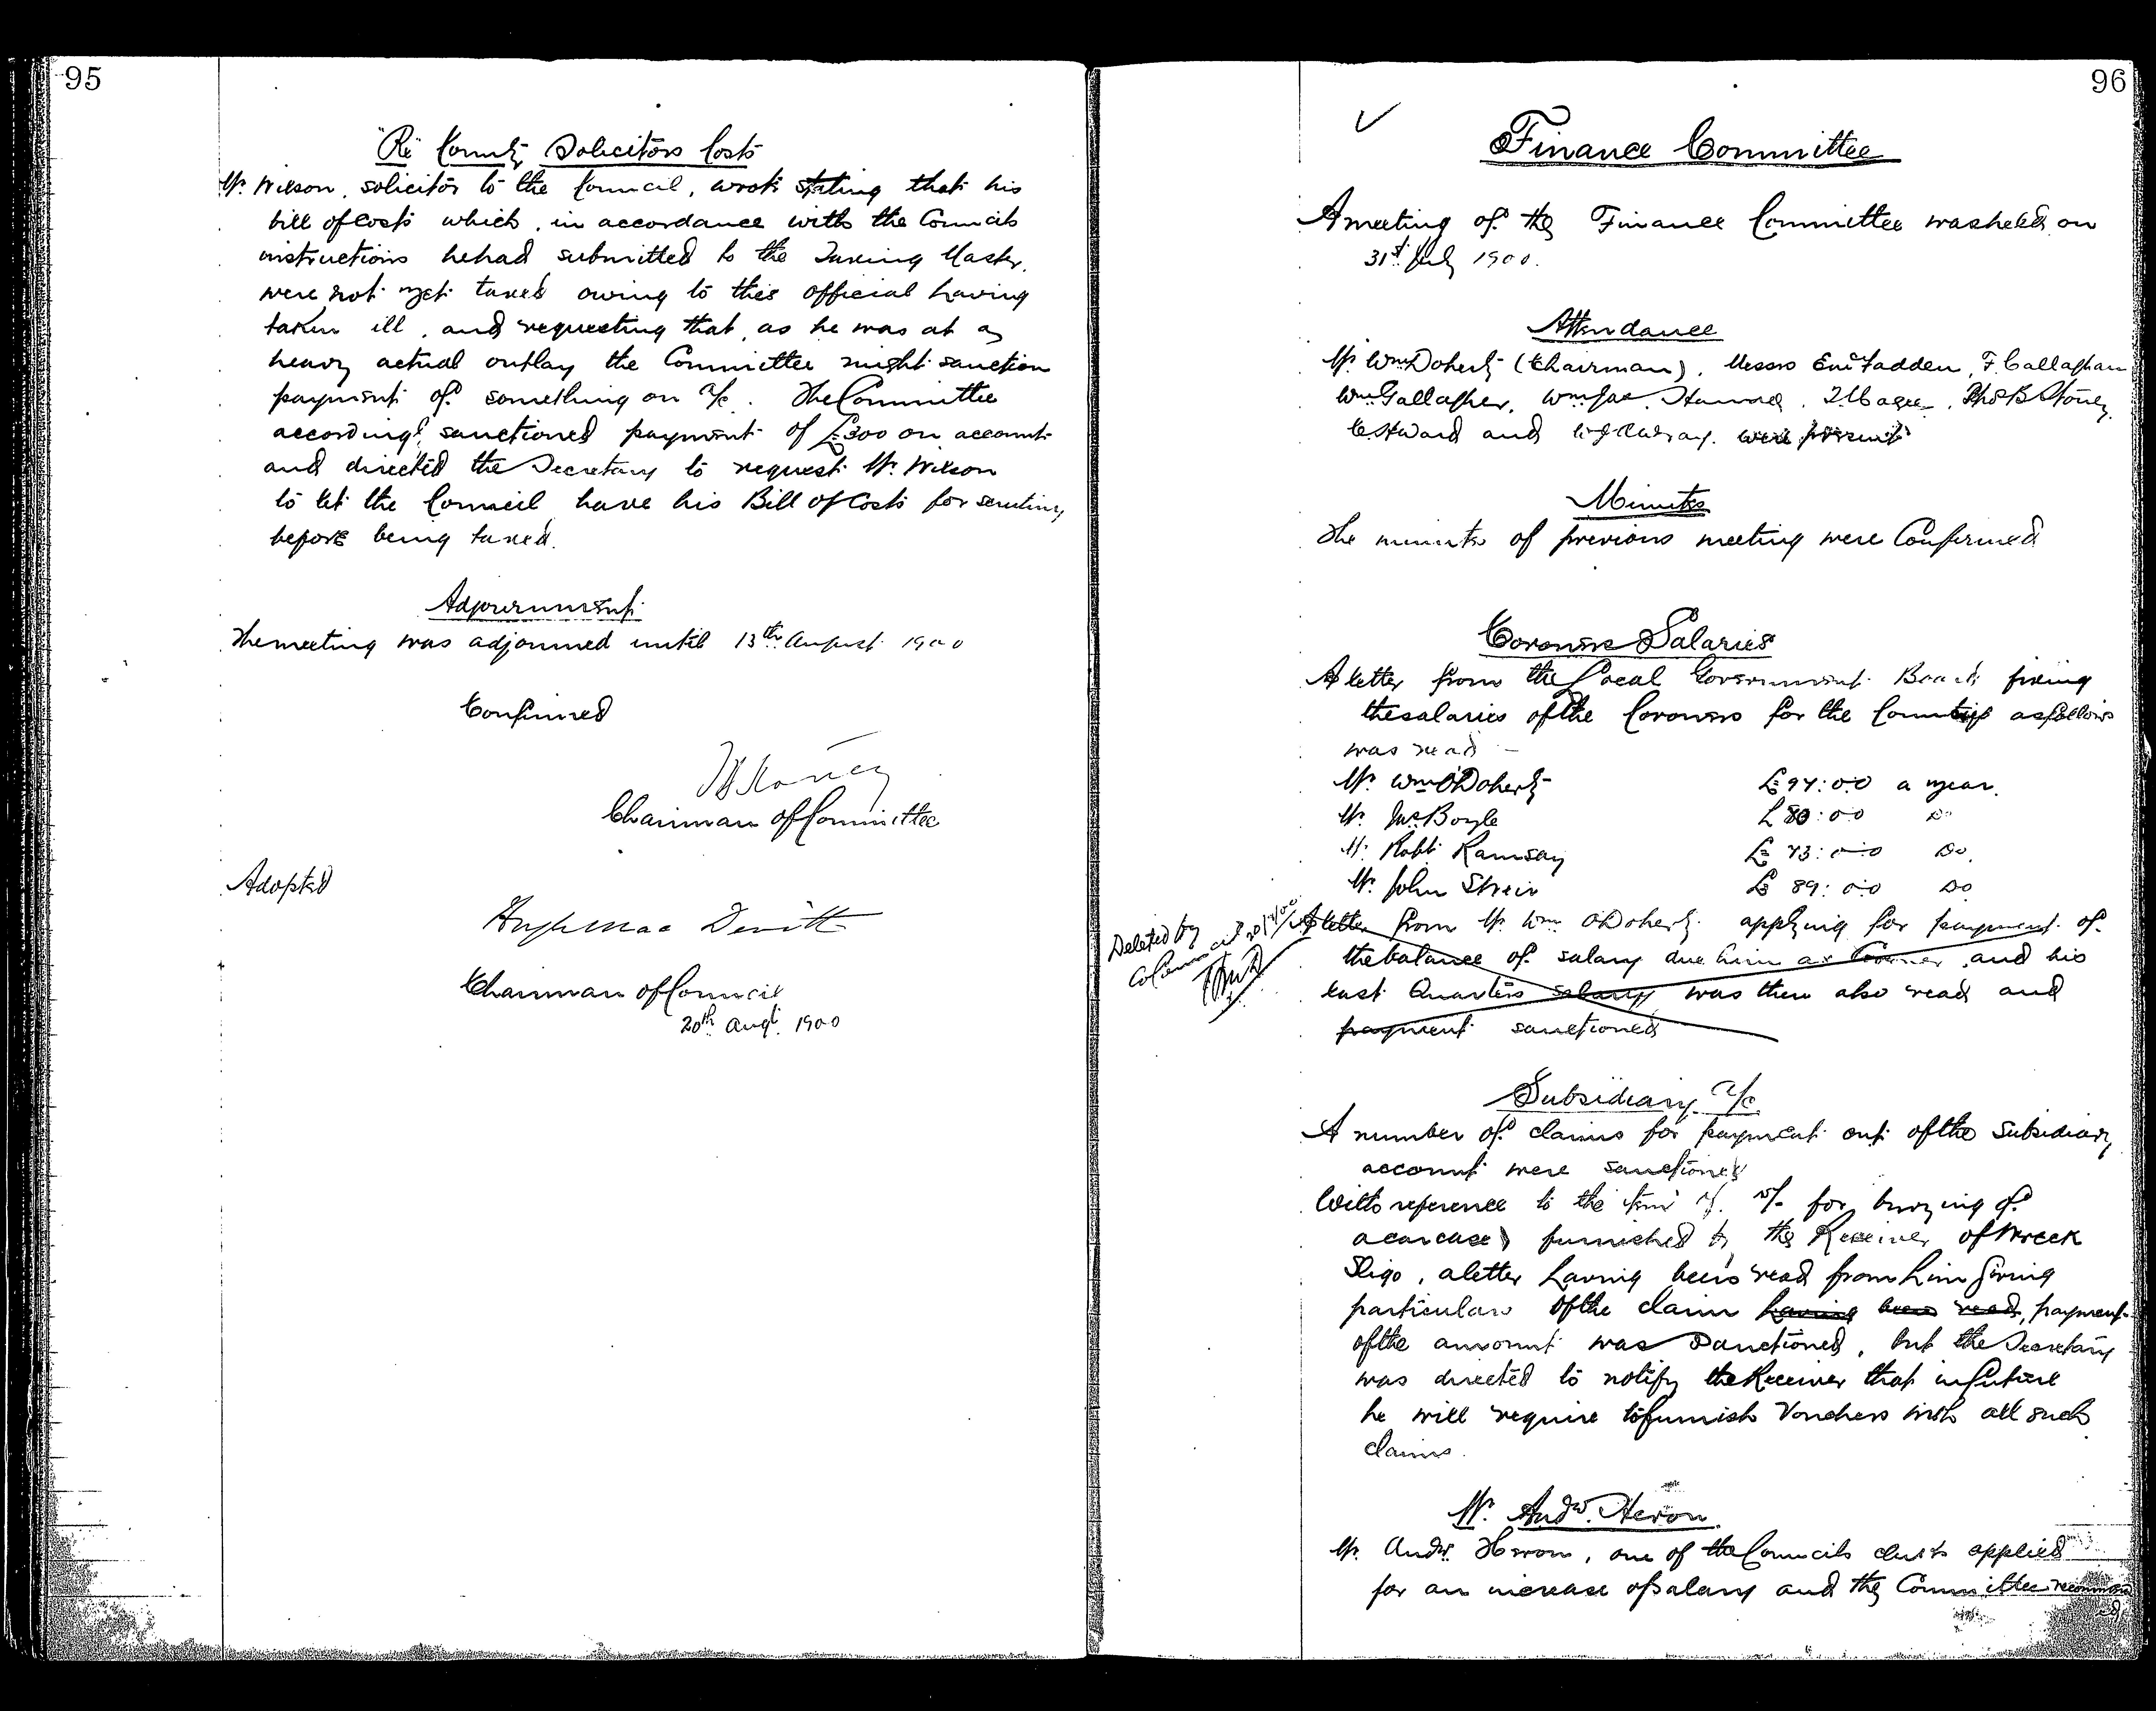 95
"Re" County Solicitors Costs
Mr. Wilson, solicitor to the Council, wrote stating that his
bill of costs which, in accordance with the Councils
instructions he had submitted to the Taxing Master,
were not yet taxed owing to this official having
taken ill, and requesting that, as he was at a
heavy actual outlay the Committee might sanction
payment of something on a/c. The Committee
accordingly sanctioned payment of £300 on account
and directed the Secretary to request Mr. Wilson
to let the Council have his Bill of Costs for scrutiny
before being taxed.
Adjournment
The meeting was adjourned until 13th August 1900
Confirmed
Chairman of Committee
Adopted
Hugh Mac Devitt
Chairman of Council
20th Augt. 1900
96
Finance Committee
A meeting of the Finance Committee was held on
31st July 1900.
Attendance
Mr. Wm Doherty (Chairman), Messrs Fadden, F. Callaghan
Wm Gallagher, Wm Jas. Hanna, Magee, Thos B Stoney,
Steward and were present
Minutes
The minutes of previous meeting were Confirmed
Coroners Salaries
A letter from the Local Government Board fixing
the salaries of the Coroners for the County as follows
was read —
Mr. Wm O'Doherty £94:0:0 a year.
Mr. Jas Boyle £80:0:0 Do
Mr. Robt Ramsay £73:0:0 Do.
Mr. John Weir £89:0:0 Do
Deleted by
Council
A letter from Mr. Wm. O'Doherty applying for payment of
the balance of salary due him as Coroner, and his
last Quarters salary, was then also read and
payment sanctioned
Subsidiary a/c.
A number of claims for payment out of the Subsidiary
account were sanctioned
With reference to the item of 5/- for burying of
a carcase furnished by the Receiver of Wreck
Sligo, a letter having been read from him giving
particulars of the claim having been read, payment
of the amount was sanctioned, but the Secretary
was directed to notify the Receiver that in future
he will require to furnish Vouchers with all such
claims.
Mr. Andw. Heron.
Mr. Andw. Heron, one of the Councils clerks applied
for an increase of salary and the Committee recommend
ed